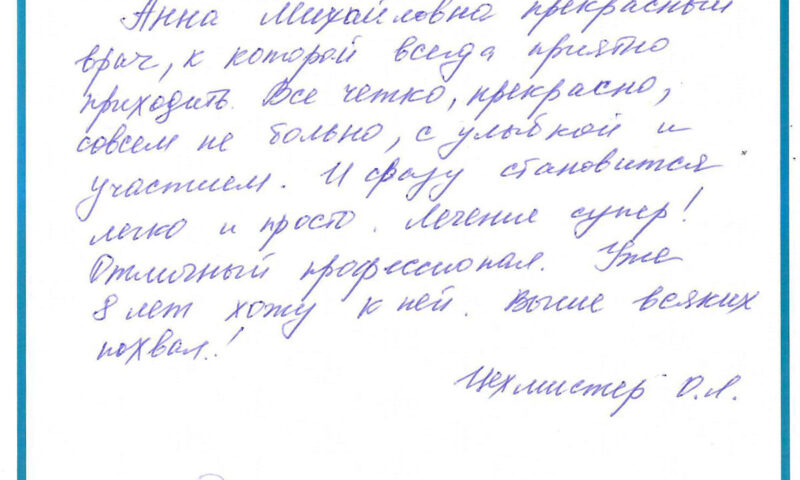 Анна Михайловна прекрасный
врач, к которой всегда приятно
приходить. Все четко, прекрасно,
совсем не больно, с улыбкой и
участием. И сразу становится
легко и просто. Лечение супер!
Отличный профессионал. Уже
8 лет хожу к ней. Выше всяких
похвал!
Цехмистер О.А.